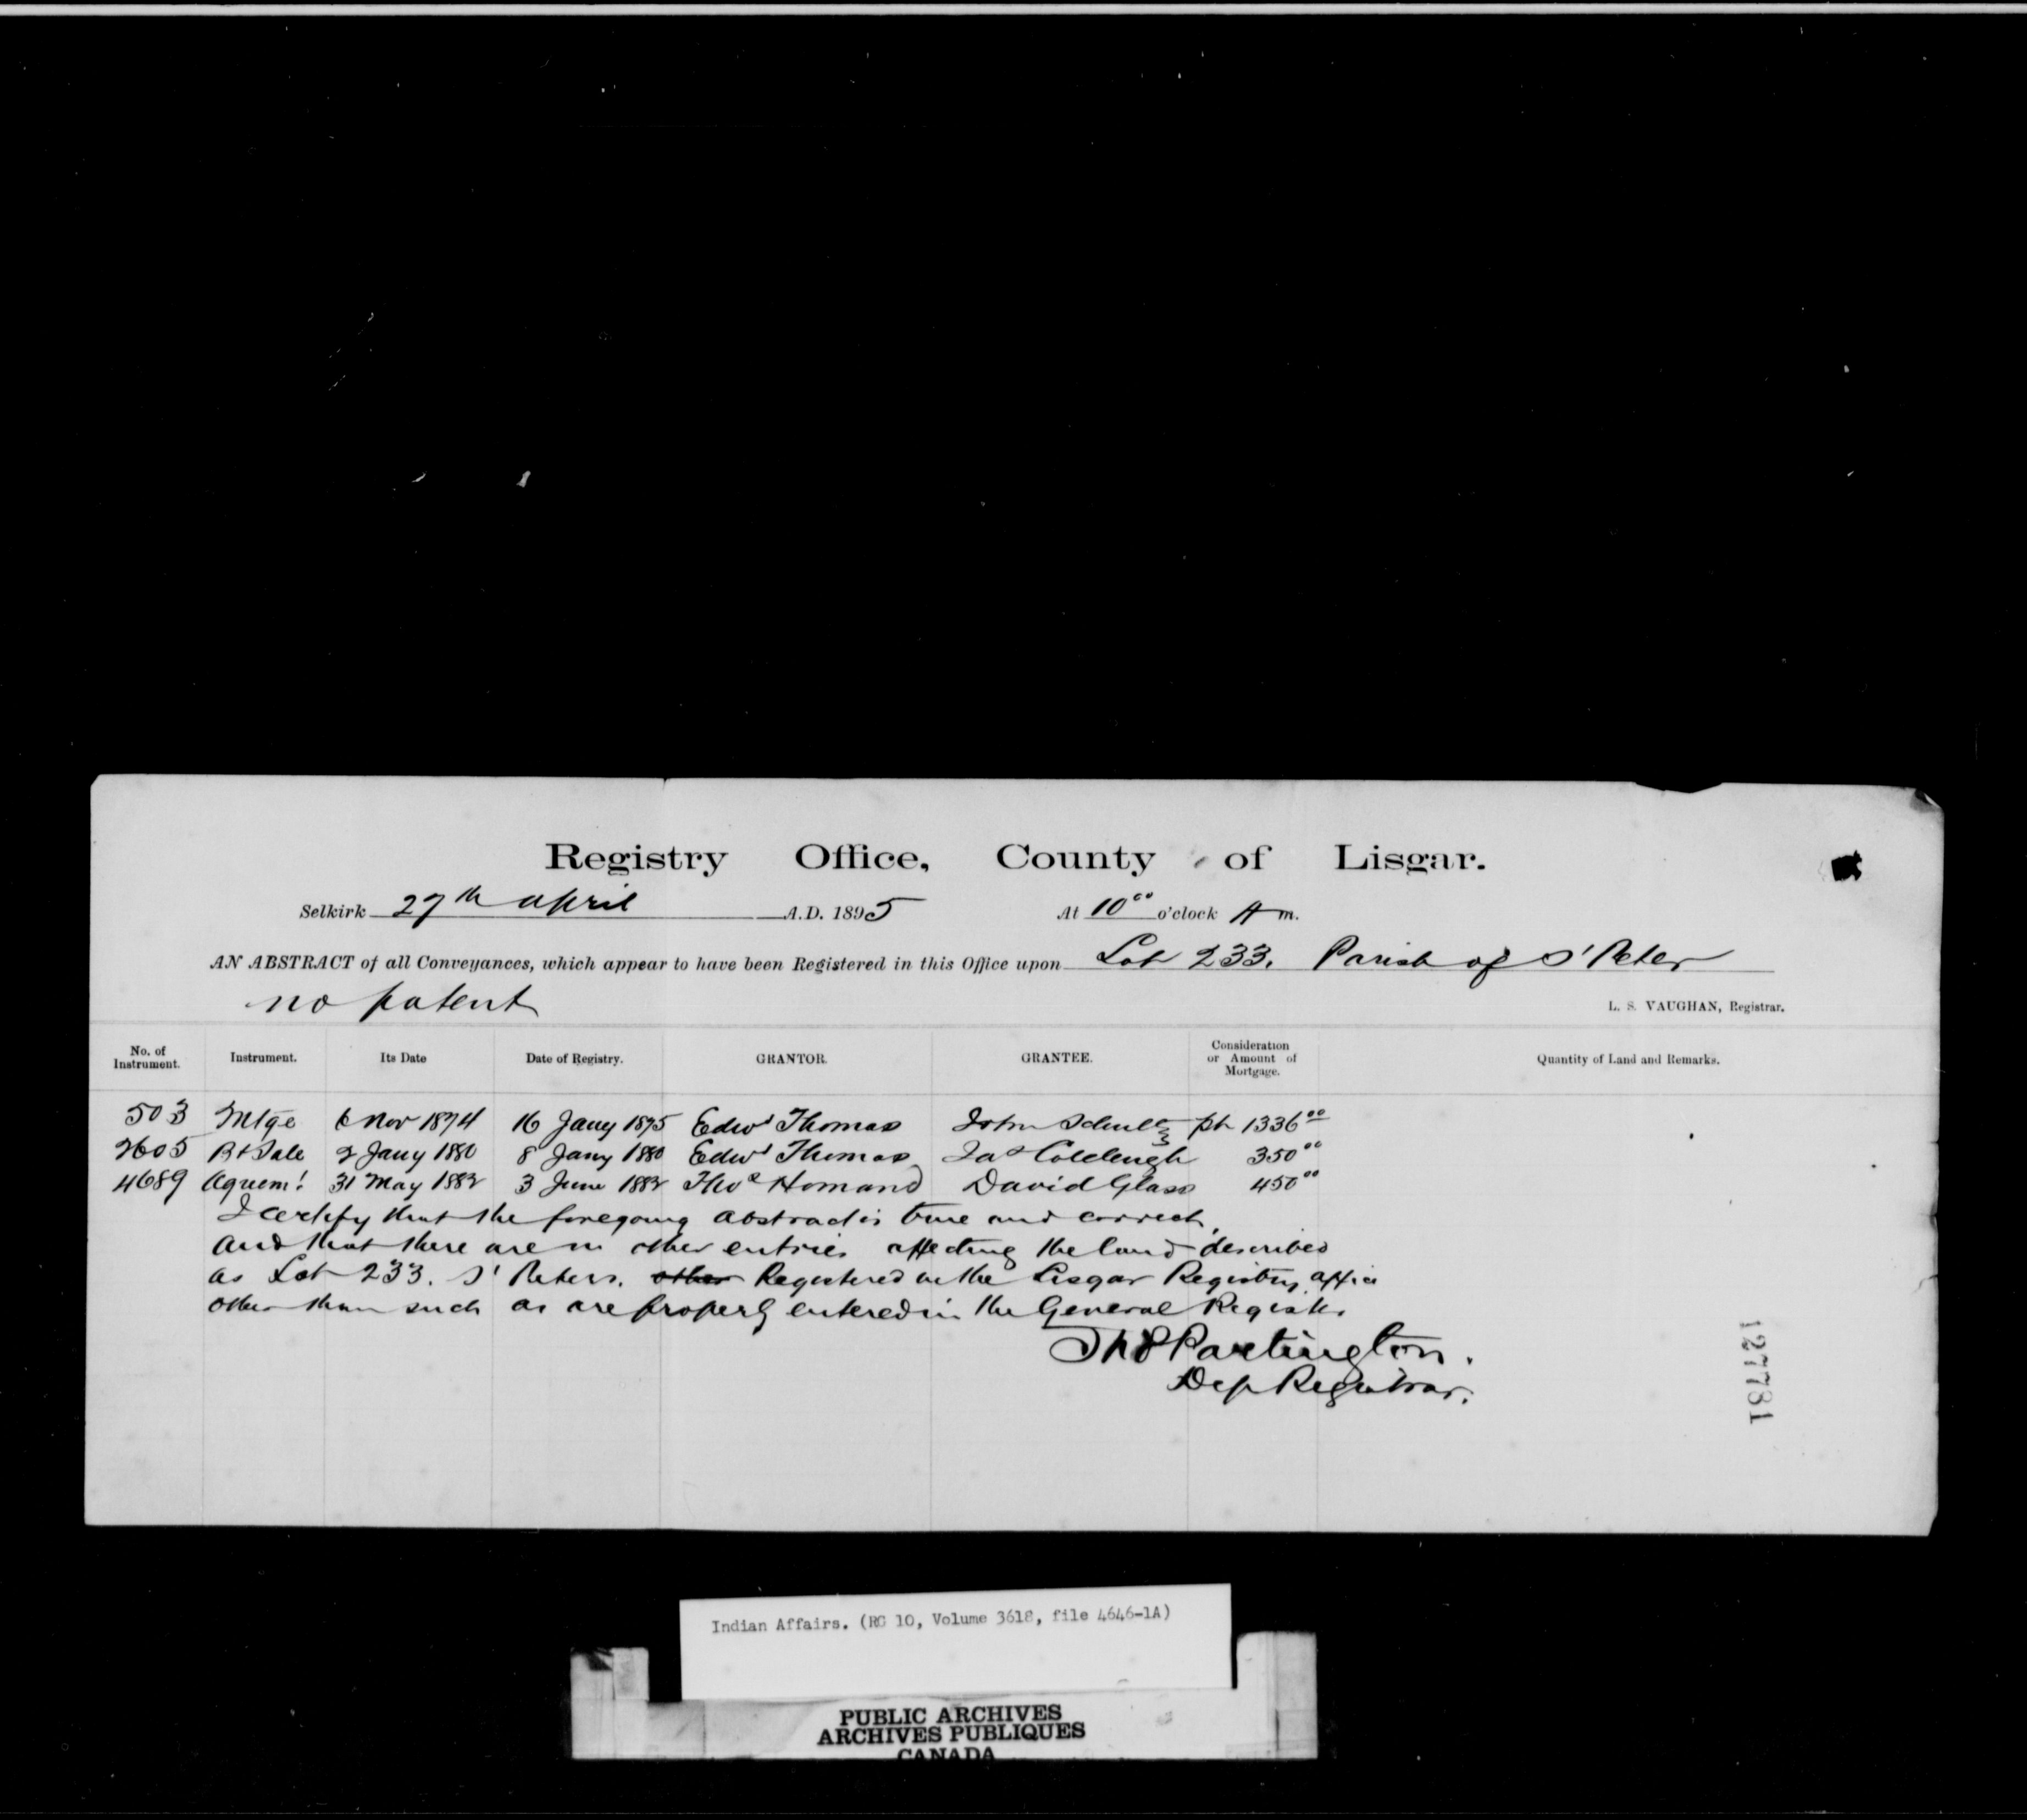 Registry Office, County of Lisgar.
Selkirk 27th April A.D. 1895 At 10⁰⁰ o'clock A m.
AN ABSTRACT of all Conveyances, which appear to have been Registered in this Office upon Lot 233. Parish of St Peter
no patent
L. S. VAUGHAN, Registrar.
No. of Instrument. Instrument. Its Date Date of Registry. GRANTOR. GRANTEE. Consideration or Amount of Mortgage. Quantity of Land and Remarks.
503 Mtge 6 Nov 1874 16 Jany 1875 Edwd Thomas John Schultz 1336⁰⁰
2605 B+Sale 2 Jany 1880 8 Jany 1880 Edwd Thomas Jas Colcleugh 350⁰⁰
4689 Agreemt 31 May 1882 3 June 1882 Thos Homand David Glass 450⁰⁰
I certify that the foregoing abstract is true and correct,
and that there are no other entries affecting the land described
as Lot 233. St Peters. other Registered in the Lisgar Registry office
other than such as are properly entered in the General Register.
Partington.
Dep Registrar.
127781
Indian Affairs. (RG 10, Volume 3618, file 4646-1A)
PUBLIC ARCHIVES
ARCHIVES PUBLIQUES
CANADA